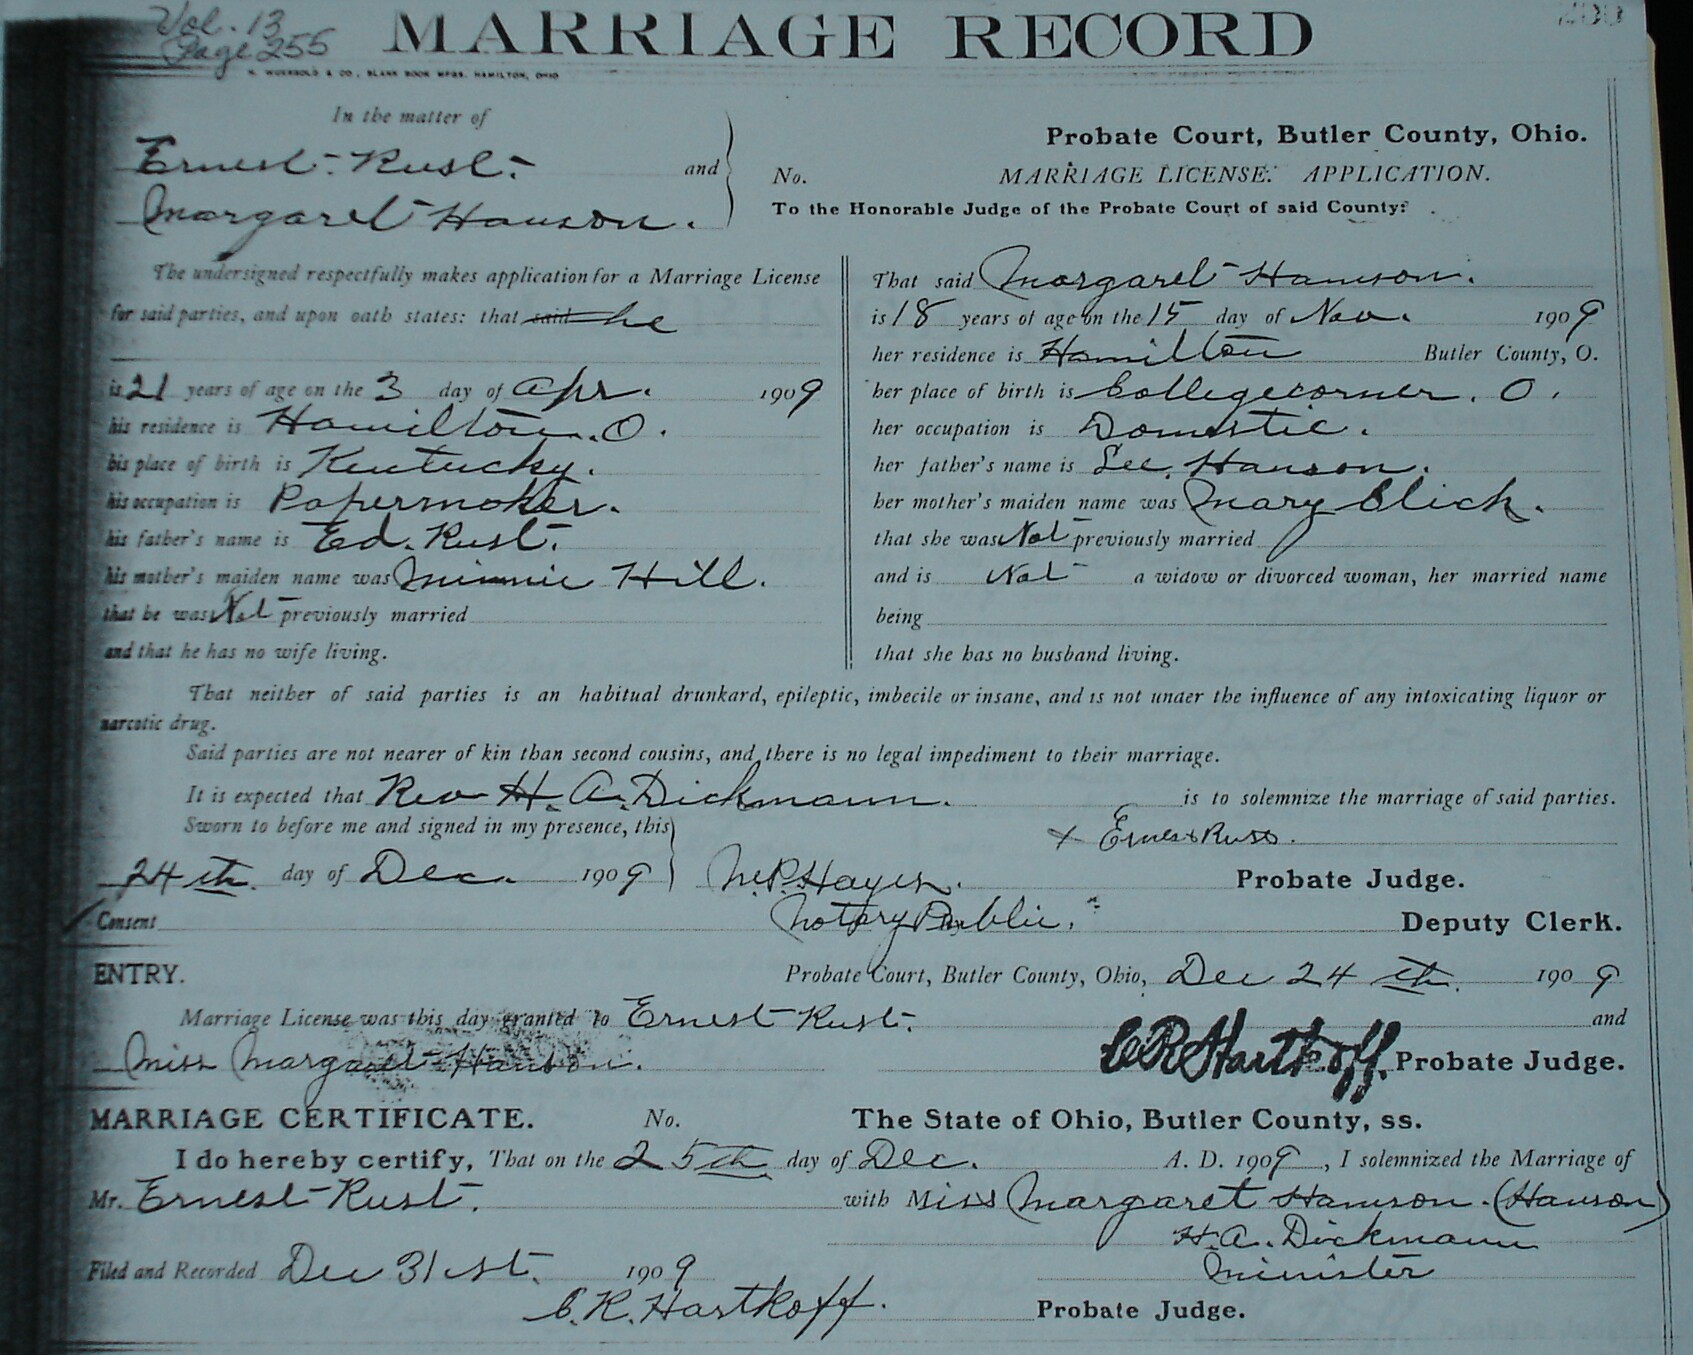 Vol. 13
Page 255
MARRIAGE RECORD
& CO., BLANK BOOK MFGS. HAMILTON, OHIO
In the matter of
Ernest Rust. and
Margaret Hauson.
Probate Court, Butler County, Ohio.
No. MARRIAGE LICENSE. APPLICATION.
To the Honorable Judge of the Probate Court of said County:
The undersigned respectfully makes application for a Marriage License
for said parties, and upon oath states: that said he
is 21 years of age on the 3 day of Apr. 1909
his residence is Hamilton, O.
his place of birth is Kentucky.
his occupation is Papermaker.
his father's name is Ed. Rust.
his mother's maiden name was Minnie Hill.
that he was Not previously married
and that he has no wife living.
That said Margaret Hauson.
is 18 years of age on the 15 day of Nov. 1909
her residence is Hamilton Butler County, O.
her place of birth is Collegecorner, O.
her occupation is Domestic.
her father's name is Lee Hauson.
her mother's maiden name was Mary Click.
that she was Not previously married
and is Not a widow or divorced woman, her married name
being
that she has no husband living.
That neither of said parties is an habitual drunkard, epileptic, imbecile or insane, and is not under the influence of any intoxicating liquor or
narcotic drug.
Said parties are not nearer of kin than second cousins, and there is no legal impediment to their marriage.
It is expected that Rev H. A. Dickmann. is to solemnize the marriage of said parties.
Sworn to before me and signed in my presence, this
x Ernest Russ.
24th day of Dec. 1909 Hayes. Probate Judge.
Consent Notary Public. Deputy Clerk.
ENTRY. Probate Court, Butler County, Ohio, Dec 24th 1909
Marriage License was this day granted to Ernest Rust. and
Miss Margaret Hauson. C R Hartkoff. Probate Judge.
MARRIAGE CERTIFICATE. No. The State of Ohio, Butler County, ss.
I do hereby certify, That on the 25th day of Dec. A. D. 1909, I solemnized the Marriage of
Mr. Ernest Rust. with Miss Margaret Hamson. (Hauson)
H. A. Dickmann
Filed and Recorded Dec 31st. 1909 Minister
C. R. Hartkoff. Probate Judge.